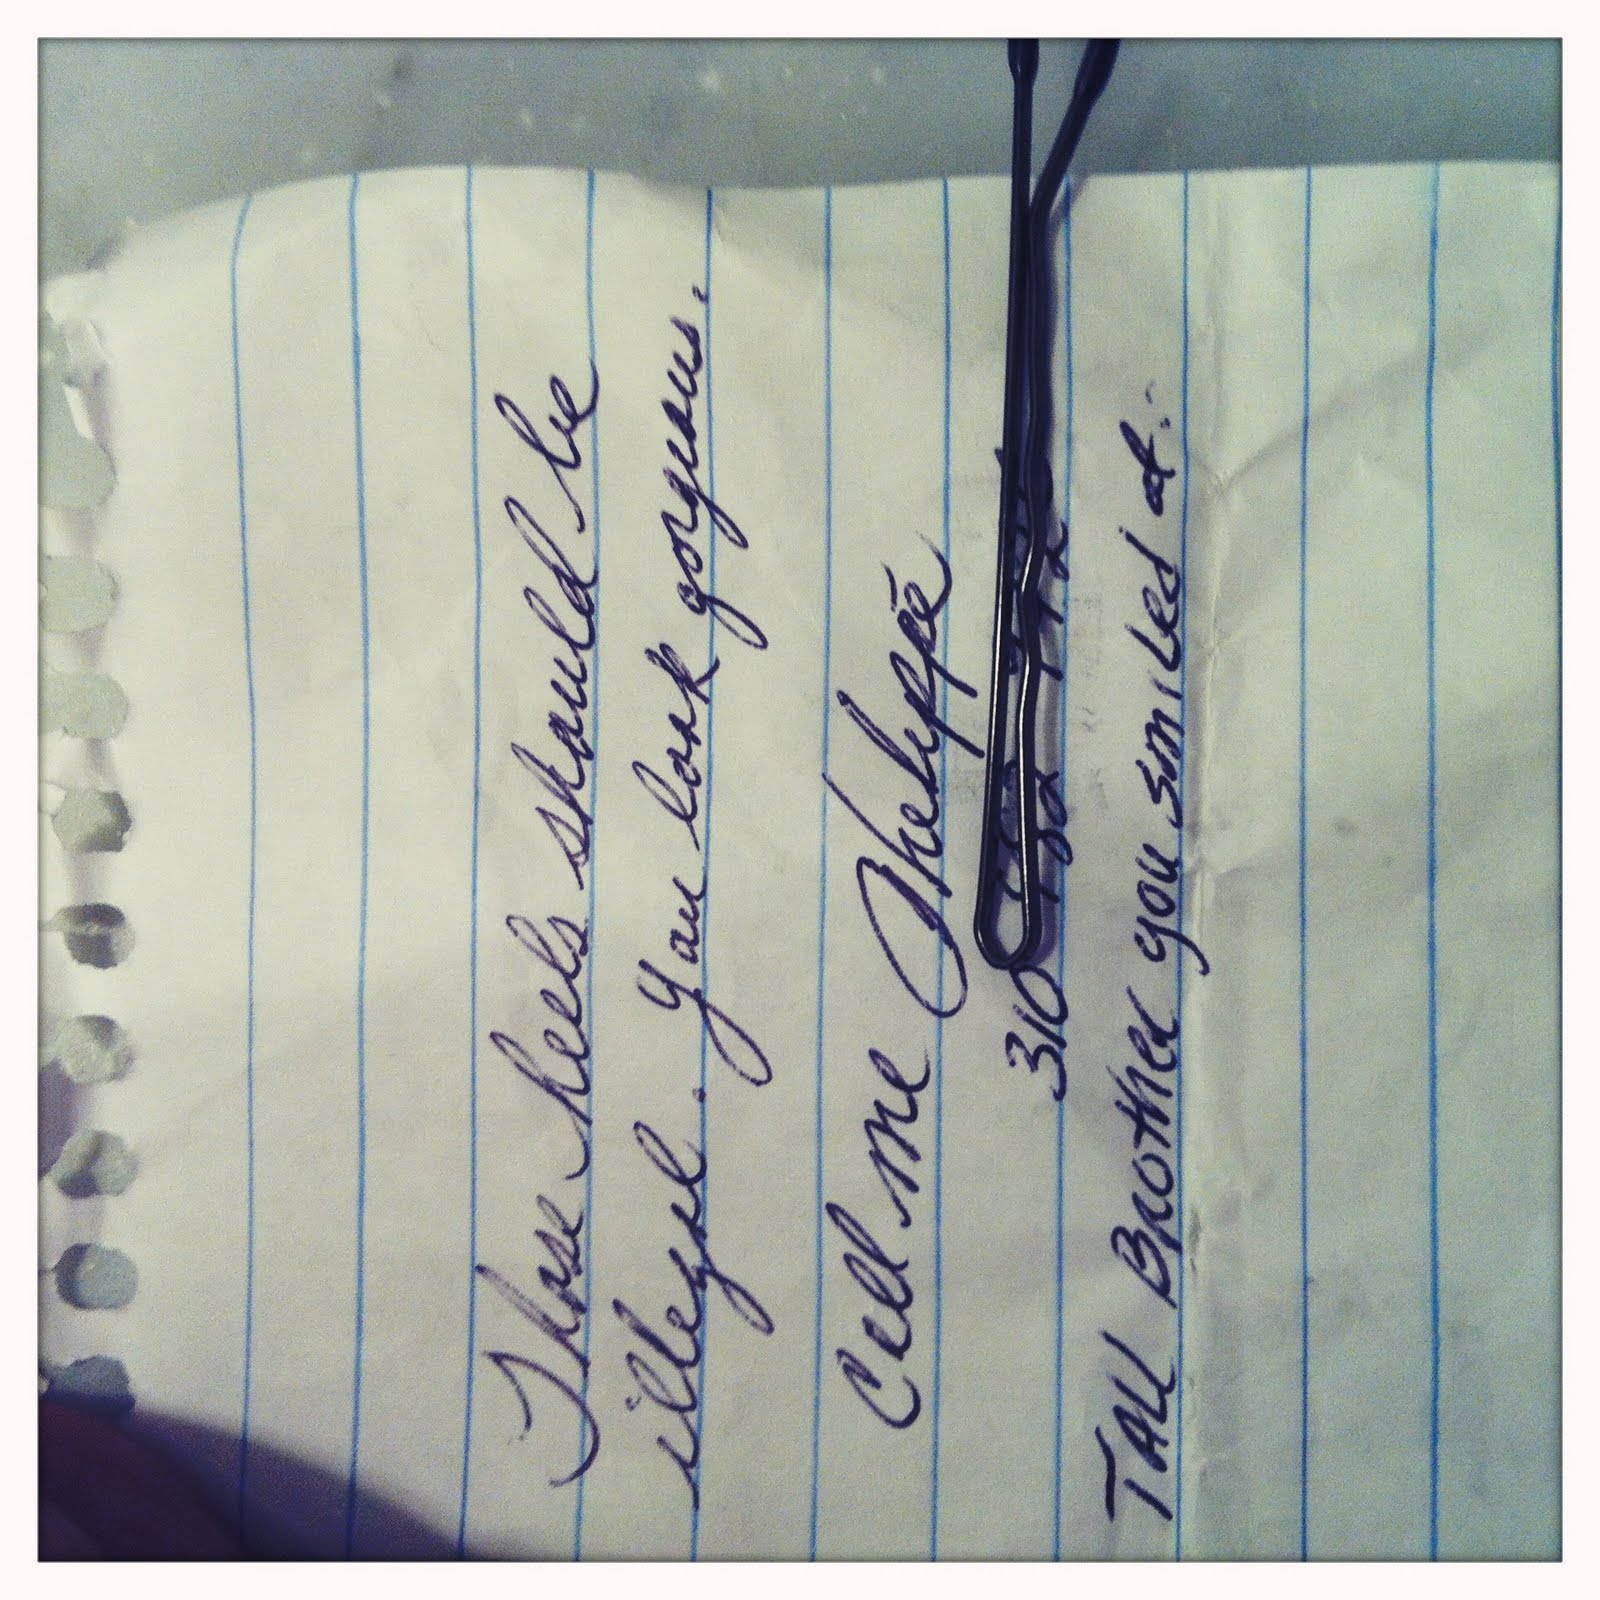 Those heels should be
illegal. You look gorgeous.
Cell me
310
TALL Brother you smiled at: